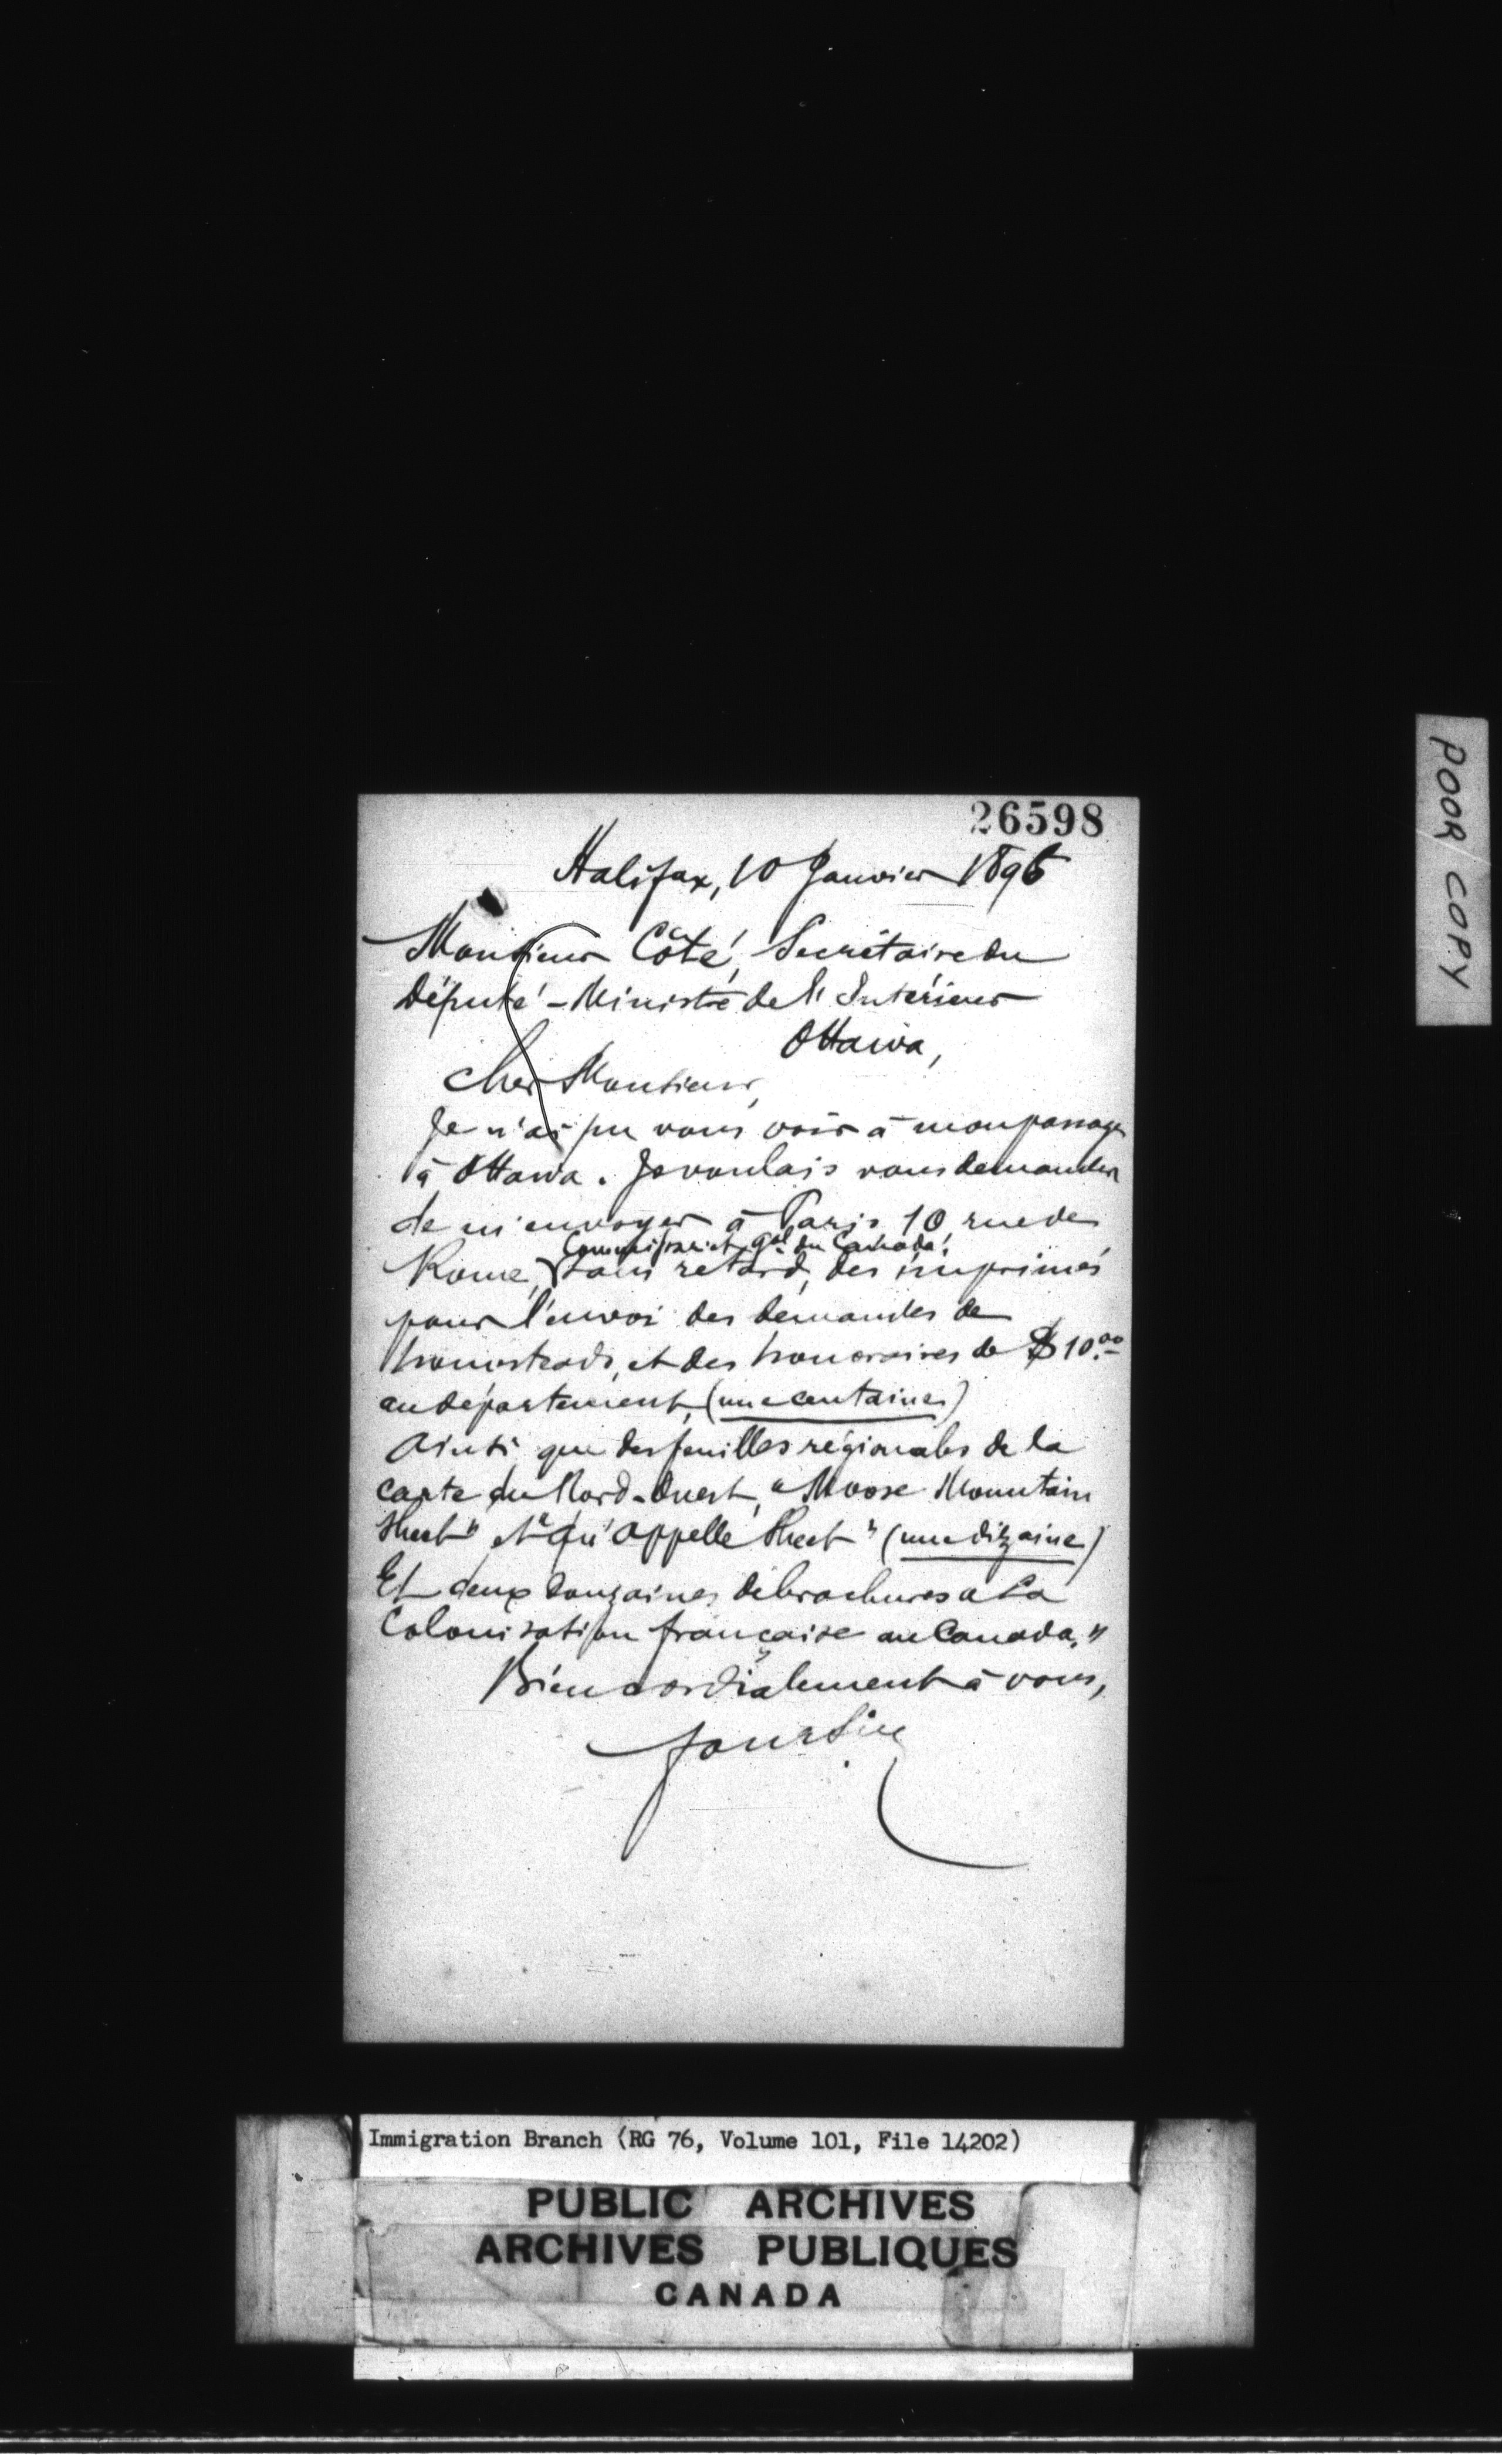 26598
Halifax, 10 Janvier 1896
Monsieur Côté, Secrétaire du
Député-Ministre de l'Intérieur
Ottawa,
Cher Monsieur,
Je n'ai pu vous voir à mon passage
à Ottawa. Je voulais vous demander
de m'envoyer à Paris, 10 rue de
Commissariat gal du Canada,
Rome, sans retard, des imprimés
pour l'envoi des demandes de
homesteads, et des honoraires de $10.00
au département, (une centaine)
Ainsi que des feuilles régionales de la
carte du Nord-Ouest, "Moose Mountain
Sheet" et "Qu'Appelle Sheet" (une dizaine)
Et deux douzaines de brochures "La
Colonisation française au Canada."
Bien cordialement à vous,
POOR COPY
Immigration Branch (RG 76, Volume 101, File 14202)
PUBLIC ARCHIVES
ARCHIVES PUBLIQUES
CANADA